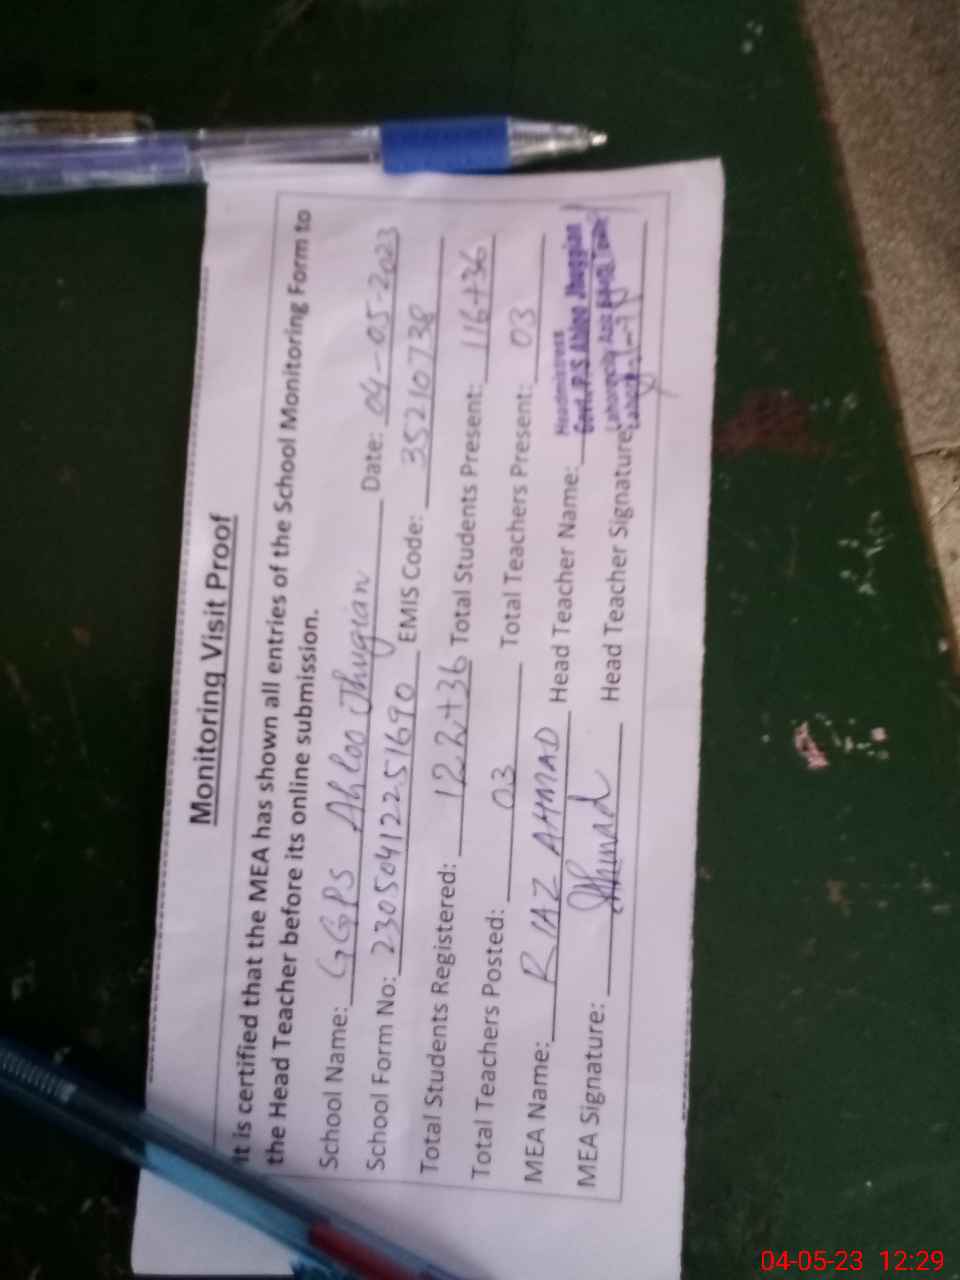 Monitoring Visit Proof
It is certified that the MEA has shown all entries of the School Monitoring Form to
the Head Teacher before its online submission.
School Name: GGPS Ahloo Jhugian Date: 04-05-2023
School Form No: 23050412251690 EMIS Code: 35210738
Total Students Registered: 122+36 Total Students Present: 116+36
Total Teachers Posted: 03 Total Teachers Present: 03
MEA Name: RIAZ AHMAD Head Teacher Name: Headmistress
Govt. P.S Ahloo Jhuggian
MEA Signature: Ahmad Head Teacher Signature:
04-05-23 12:29